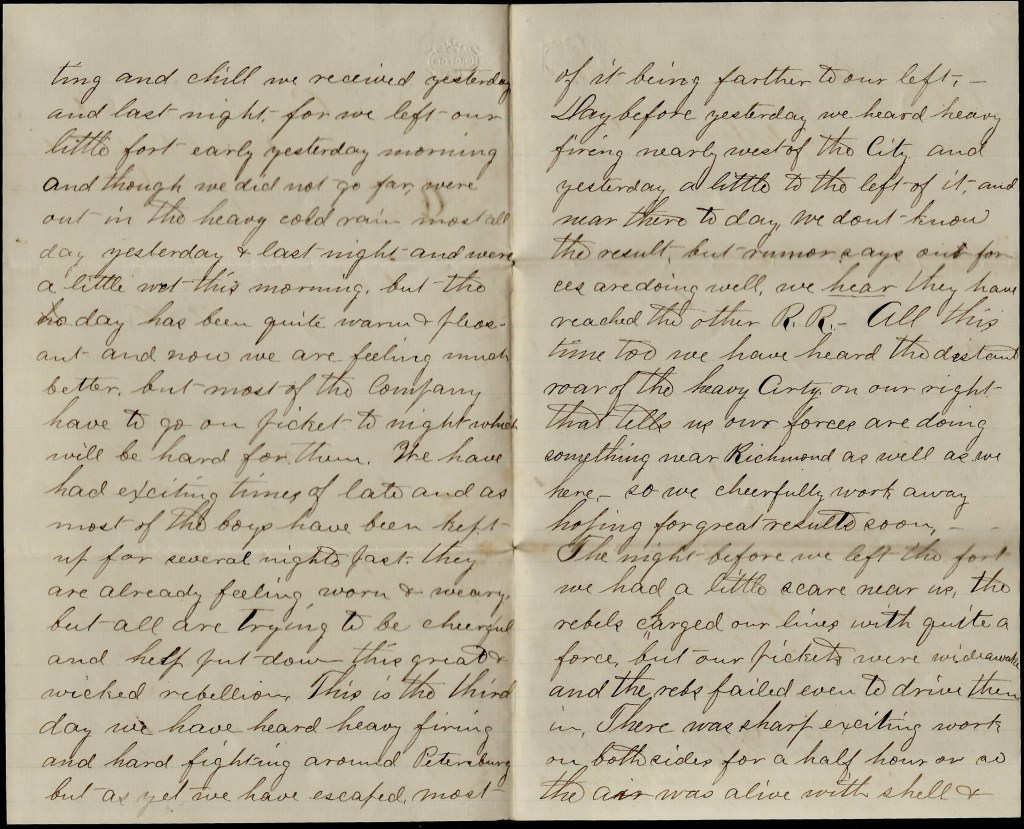 ting and chill we received yesterday
and last night, for we left our
little fort early yesterday morning
and though we did not go far, were
out in the heavy cold rain most all
day yesterday & last night and were
a little wet this morning, but the
day has been quite warm & pleas-
ant and now we are feeling much
better, but most of the Company
have to go on picket to night which
will be hard for them. We have
had exciting times of late and as
most of the boys have been kept
up for several nights past, they
are already feeling worn & weary,
but all are trying to be cheerful
and help put down this great &
wicked rebellion, This is the third
day we have heard heavy firing
and hard fighting around Petersburg
but as yet we have escaped, most
of it being farther to our left, –
Day before yesterday we heard heavy
firing nearly west of the City and
yesterday a little to the left of it, and
near there to day, we dont know
the result, but rumor says our for
ces are doing well, we hear they have
reached the other R. R. – All this
time too we have heard the distant
roar of the heavy Arty. on our right
that tells us our forces are doing
something near Richmond as well as we
here, – so we cheerfully work away
hoping for great results soon, – –
The night before we left the fort
we had a little scare near us, the
rebels carged our lines with quite a
force, but our pickets were wideawake
and the rebs failed even to drive them
in, There was sharp exciting work
on both sides for a half hour or so
the air was alive with shell &